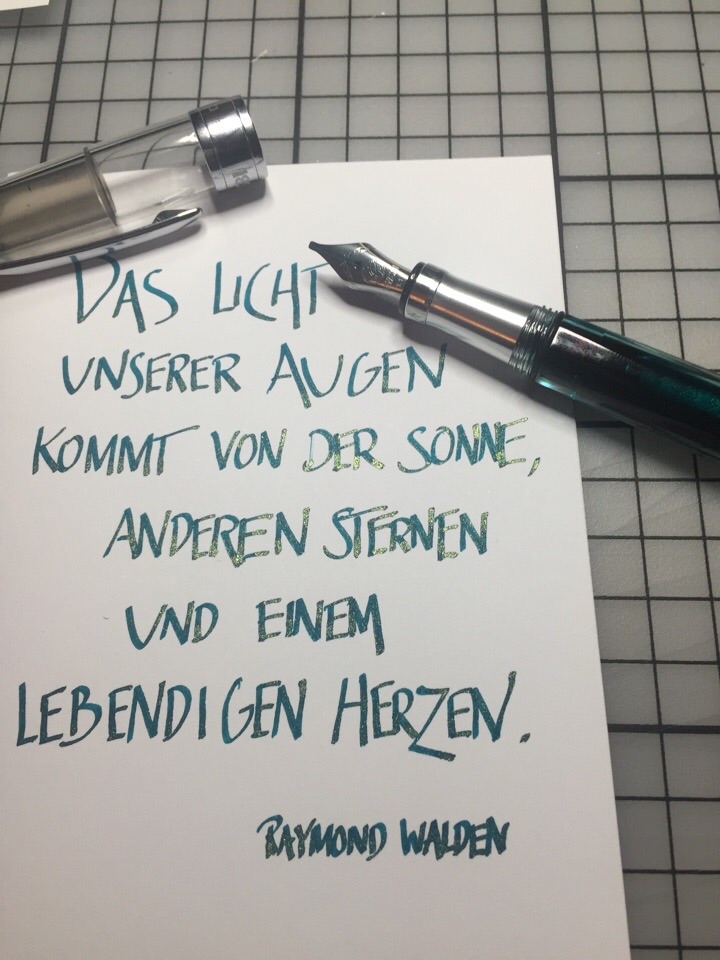 DAS LICHT
UNSERER AUGEN
KOMMT VON DER SONNE,
ANDEREN STERNEN
UND EINEM
LEBENDIGEN HERZEN.
RAYMOND WALDEN